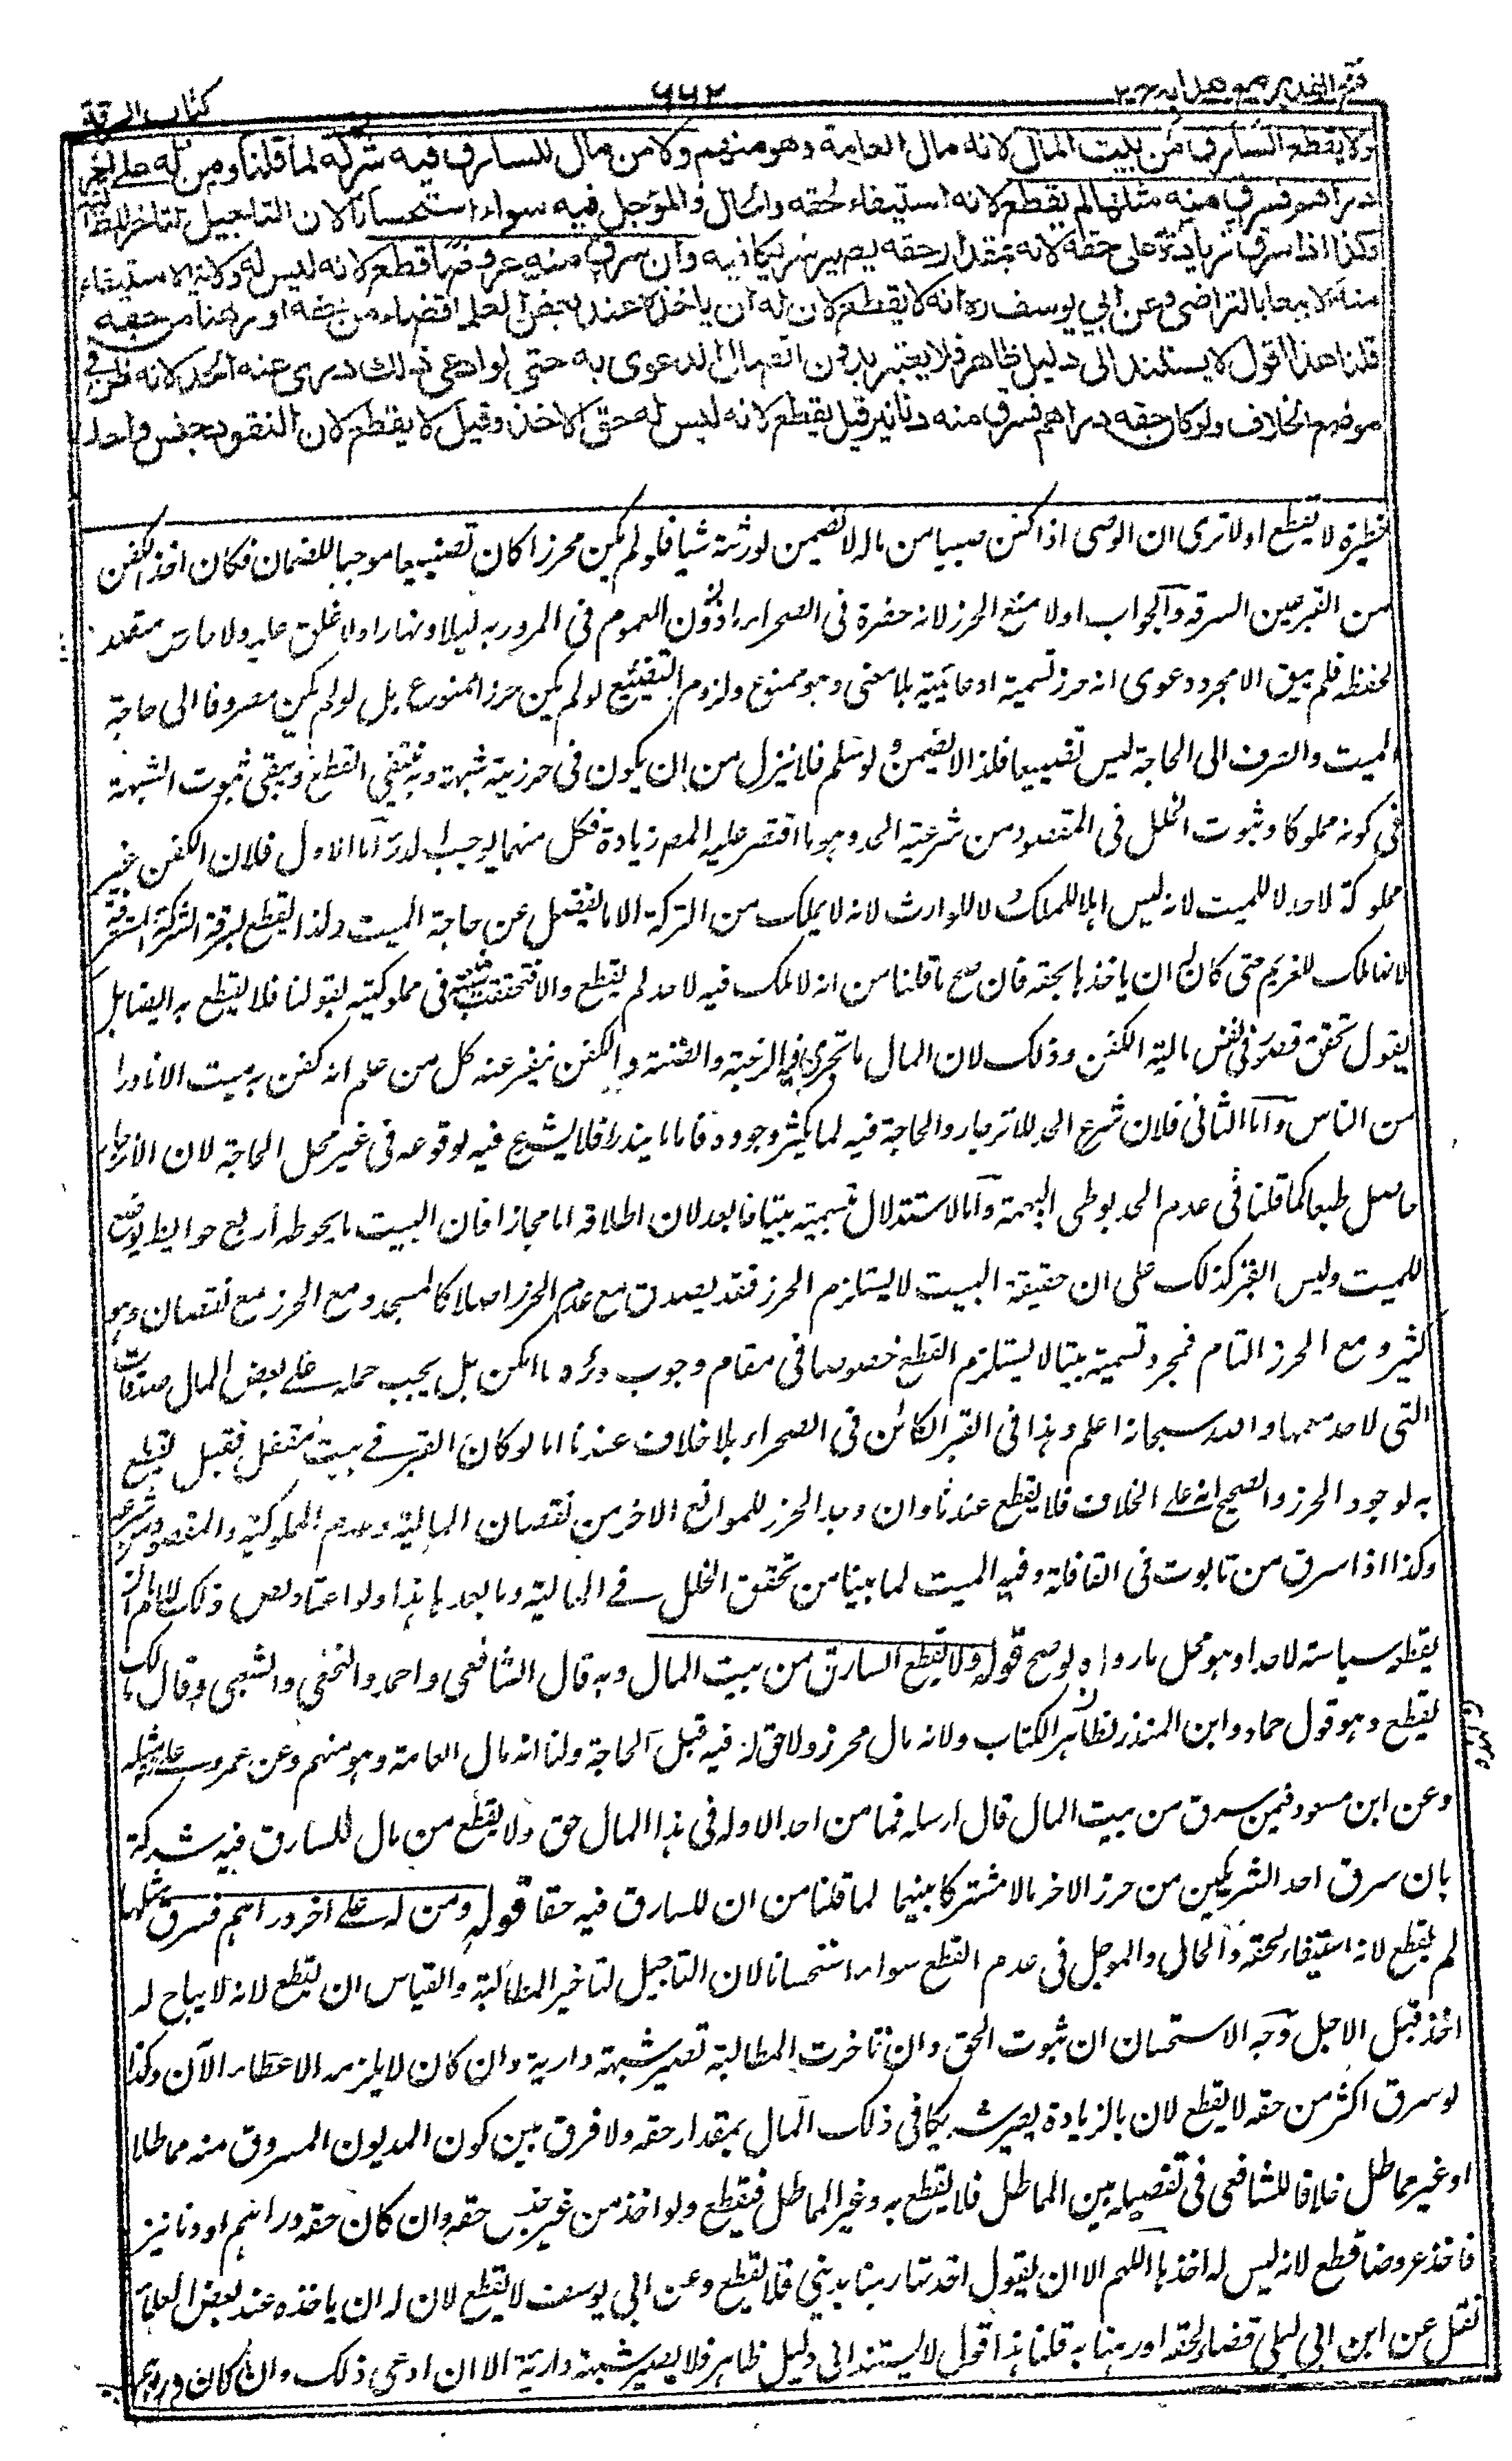 فتح القدير مع هدايه ج٢
٦٦٢
كتاب السرقة
ولا يقطع السارق من بيت المال لانه مال العامة وهو منهم ولا من مال للسارق فيه شركة لما قلنا ومن له على اخر
دراهم فسرق منه مثلها لم يقطع لانه استيفاء لحقه والحال والمؤجل فيه سواء استحسانا لان التاجيل لتاخير المطالبة
وكذا اذا سرق زيادة على حقه لانه بمقدار حقه يصير شريكا فيه وان سرق منه عروضا قطع لانه ليس له ولاية الاستيفاء
منه الا بيعا بالتراضى وعن ابي يوسف ره انه لا يقطع لان له ان ياخذه عند بعض العلماء قضاء من حقه او رهنا من حقه
قلنا هذا القول لا يستند الى دليل ظاهر فلا يعتبر بدون اتصال الدعوى به حتى لو ادعى ذلك درئ عنه الحد لانه ظن في
موضع الخلاف ولو كان حقه دراهم فسرق منه دنانير قيل يقطع لانه ليس له حق الاخذ وقيل لا يقطع لان النقود جنس واحد
حظيرة لا يقطع اولا ترى ان الوصى اذا كفن صبيا من ماله لا يضمن لورثته شيا فلو لم يكن محرزا كان تضييعا موجبا للضمان فكان اخذ الكفن
من القبر عين السرقه والجواب اولا منع الحرز لانه حفرة فى الصحراء ماذون للعموم فى المرور به ليلا ونهارا ولا غلق عليه ولا حارس متصد
لحفظه فلم يبق الا مجرد دعوى انه حرز تسمية ادعائية بلا معنى وهو ممنوع ولزوم التضييع لو لم يكن حرزا ممنوع بل لو لم يكن مصروفا الى حاجة
الميت والصرف الى الحاجة ليس تضييعا فلذا لا يضمن ولو سلم فلا ينزل من ان يكون فى حرزيته شبهة وبه ينتفى القطع ويبقى ثبوت الشبهة
فى كونه مملوكا وثبوت الخلل فى المقصود من شرعية الحد وهو ما اقتصر عليه المص زيادة فكل منهما يوجب الدرء اما الاول فلان الكفن غير
مملوكة لاحد لا للميت لانه ليس اهلا للملك ولا للوارث لانه لا يملك من التركة الا ما يفضل عن حاجة الميت ولذا يقطع بسرقة التركة المستغرقة
لانها ملك للغريم حتى كان له ان ياخذها بحقه فان صح ما قلنا من انه لا ملك فيه لاحد لم يقطع والا فتحققت شبهة فى مملوكيته بقولنا فلا يقطع به ايضا بل
يقول تحقق قصور فى نفس مالية الكفن وذلك لان المال ما تجرى فيه الرغبة والضنة والكفن ينفر عنه كل من علم انه كفن به ميت الا نادرا
من الناس واما الثانى فلان شرع الحد للانزجار والحاجة فيه لما يكثر وجوده فاما ما يندر فلا يشرع فيه لوقوعه فى غير محل الحاجة لان الانزجار
حاصل طبعا كما قلنا فى عدم الحد بوطى البهيمة واما الاستدلال بتسميته بيتا فابعد لان اطلاقه اما مجازا فان البيت ما يحوطه أربع حوايط يوضع
للميت وليس القبر كذلك على ان حقيقة البيت لا يستلزم الحرز فقد يصدق مع عدم الحرز اصلا كالمسجد ومع الحرز مع نقصان وهو
كثير ومع الحرز التام فمجرد تسميته بيتا لا يستلزم القطع خصوصا فى مقام وجوب درئه ما امكن بل يجب حمله على بعض المال صدقات
التى لا حد معها والله سبحانه اعلم وهذا فى القبر الكائن فى الصحراء بلا خلاف عندنا اما لو كان القبر فى بيت مقفل فقيل يقطع
به لوجود الحرز والصحيح انه على الخلاف فلا يقطع عندنا وان وجد الحرز للموانع الاخر من نقصان المالية وعدم المملوكية والمقصود من شرعية
وكذا اذا سرق من تابوت فى القافلة وفيه الميت لما بينا من تحقق الخلل فى المالية وما بعدها هذا ولو اعتاد لص ذلك للامام ان
يقطعه سياسة لا حدا وهو محمل ما رواه لو صح قوله ولا يقطع السارق من بيت المال وبه قال الشافعى واحمد والنخعى والشعبى وقال مالك
يقطع وهو قول حماد وابن المنذر لظاهر الكتاب ولانه مال محرز ولا حق له فيه قبل الحاجة ولنا انه مال العامة وهو منهم وعن عمر وعلى مثله
وعن ابن مسعود فيمن سرق من بيت المال قال ارسله فما من احد الا وله فى هذا المال حق ولا يقطع من مال للسارق فيه شركة
بان سرق احد الشريكين من حرز الاخر مالا مشتركا بينهما لما قلنا من ان للسارق فيه حقا قوله ومن له على اخر دراهم فسرق مثلها
لم يقطع لانه استيفاء لحقه والحال والموجل فى عدم القطع سواء استحسانا لان التاجيل لتاخير المطالبة والقياس ان يقطع لانه لا يباح له
اخذ قبل الاجل وجه الاستحسان ان ثبوت الحق وان تاخرت المطالبة تصير شبهة دارية وان كان لا يلزمه الاعطاء الآن وكذا
لو سرق اكثر من حقه لا يقطع لان بالزيادة يصير شريكا فى ذلك المال بمقدار حقه ولا فرق بين كون المديون المسروق منه مماطلا
او غير مماطل خلافا للشافعى فى تفصيله بين المماطل فلا يقطع به وغير المماطل فيقطع ولو اخذ من غير جنس حقه وان كان حقه دراهم او دنانير
فاخذ عروضا قطع لانه ليس له اخذها اللهم الا ان يقول اخذتها رهنا بدينى فلا يقطع وعن ابى يوسف لا يقطع لان له ان ياخذه عند بعض العلماء
نقل عن ابن ابى ليلى قضاء لحقه او رهنا به قلنا هذا قول لا يستند الى دليل ظاهر فلا يصير شبهة دارية الا ان ادعى ذلك وان كان دراهم